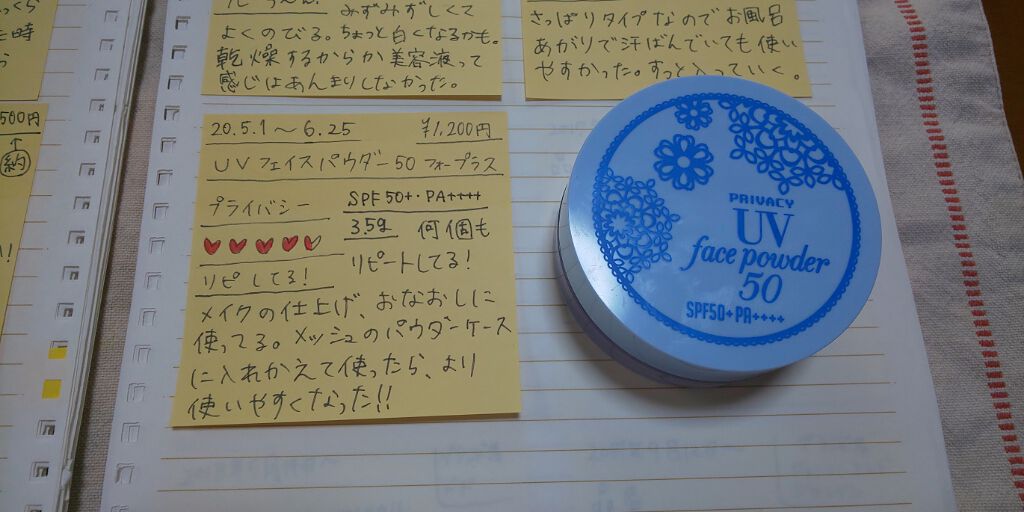 くら
時
500円
↑
納
みずみずしくて
よくのびる。ちょっと白くなるかも。
乾燥するからか美容液って
感じはあんまりしなかった。
さっぱりタイプなのでお風呂
あがりで汗ばんでいても使い
やすかった。すっと入っていく。
20.5.1～6.25 ¥1,200円
UVフェイスパウダー50フォープラス
プライバシー
SPF50+・PA++++
3.5g 何個も
リピートしてる!
リピしてる!
メイクの仕上げ、おなおしに
使ってる。メッシュのパウダーケース
に入れかえて使ったら、より
使いやすくなった!!
PRIVACY
UV
face powder
50
SPF50+PA++++